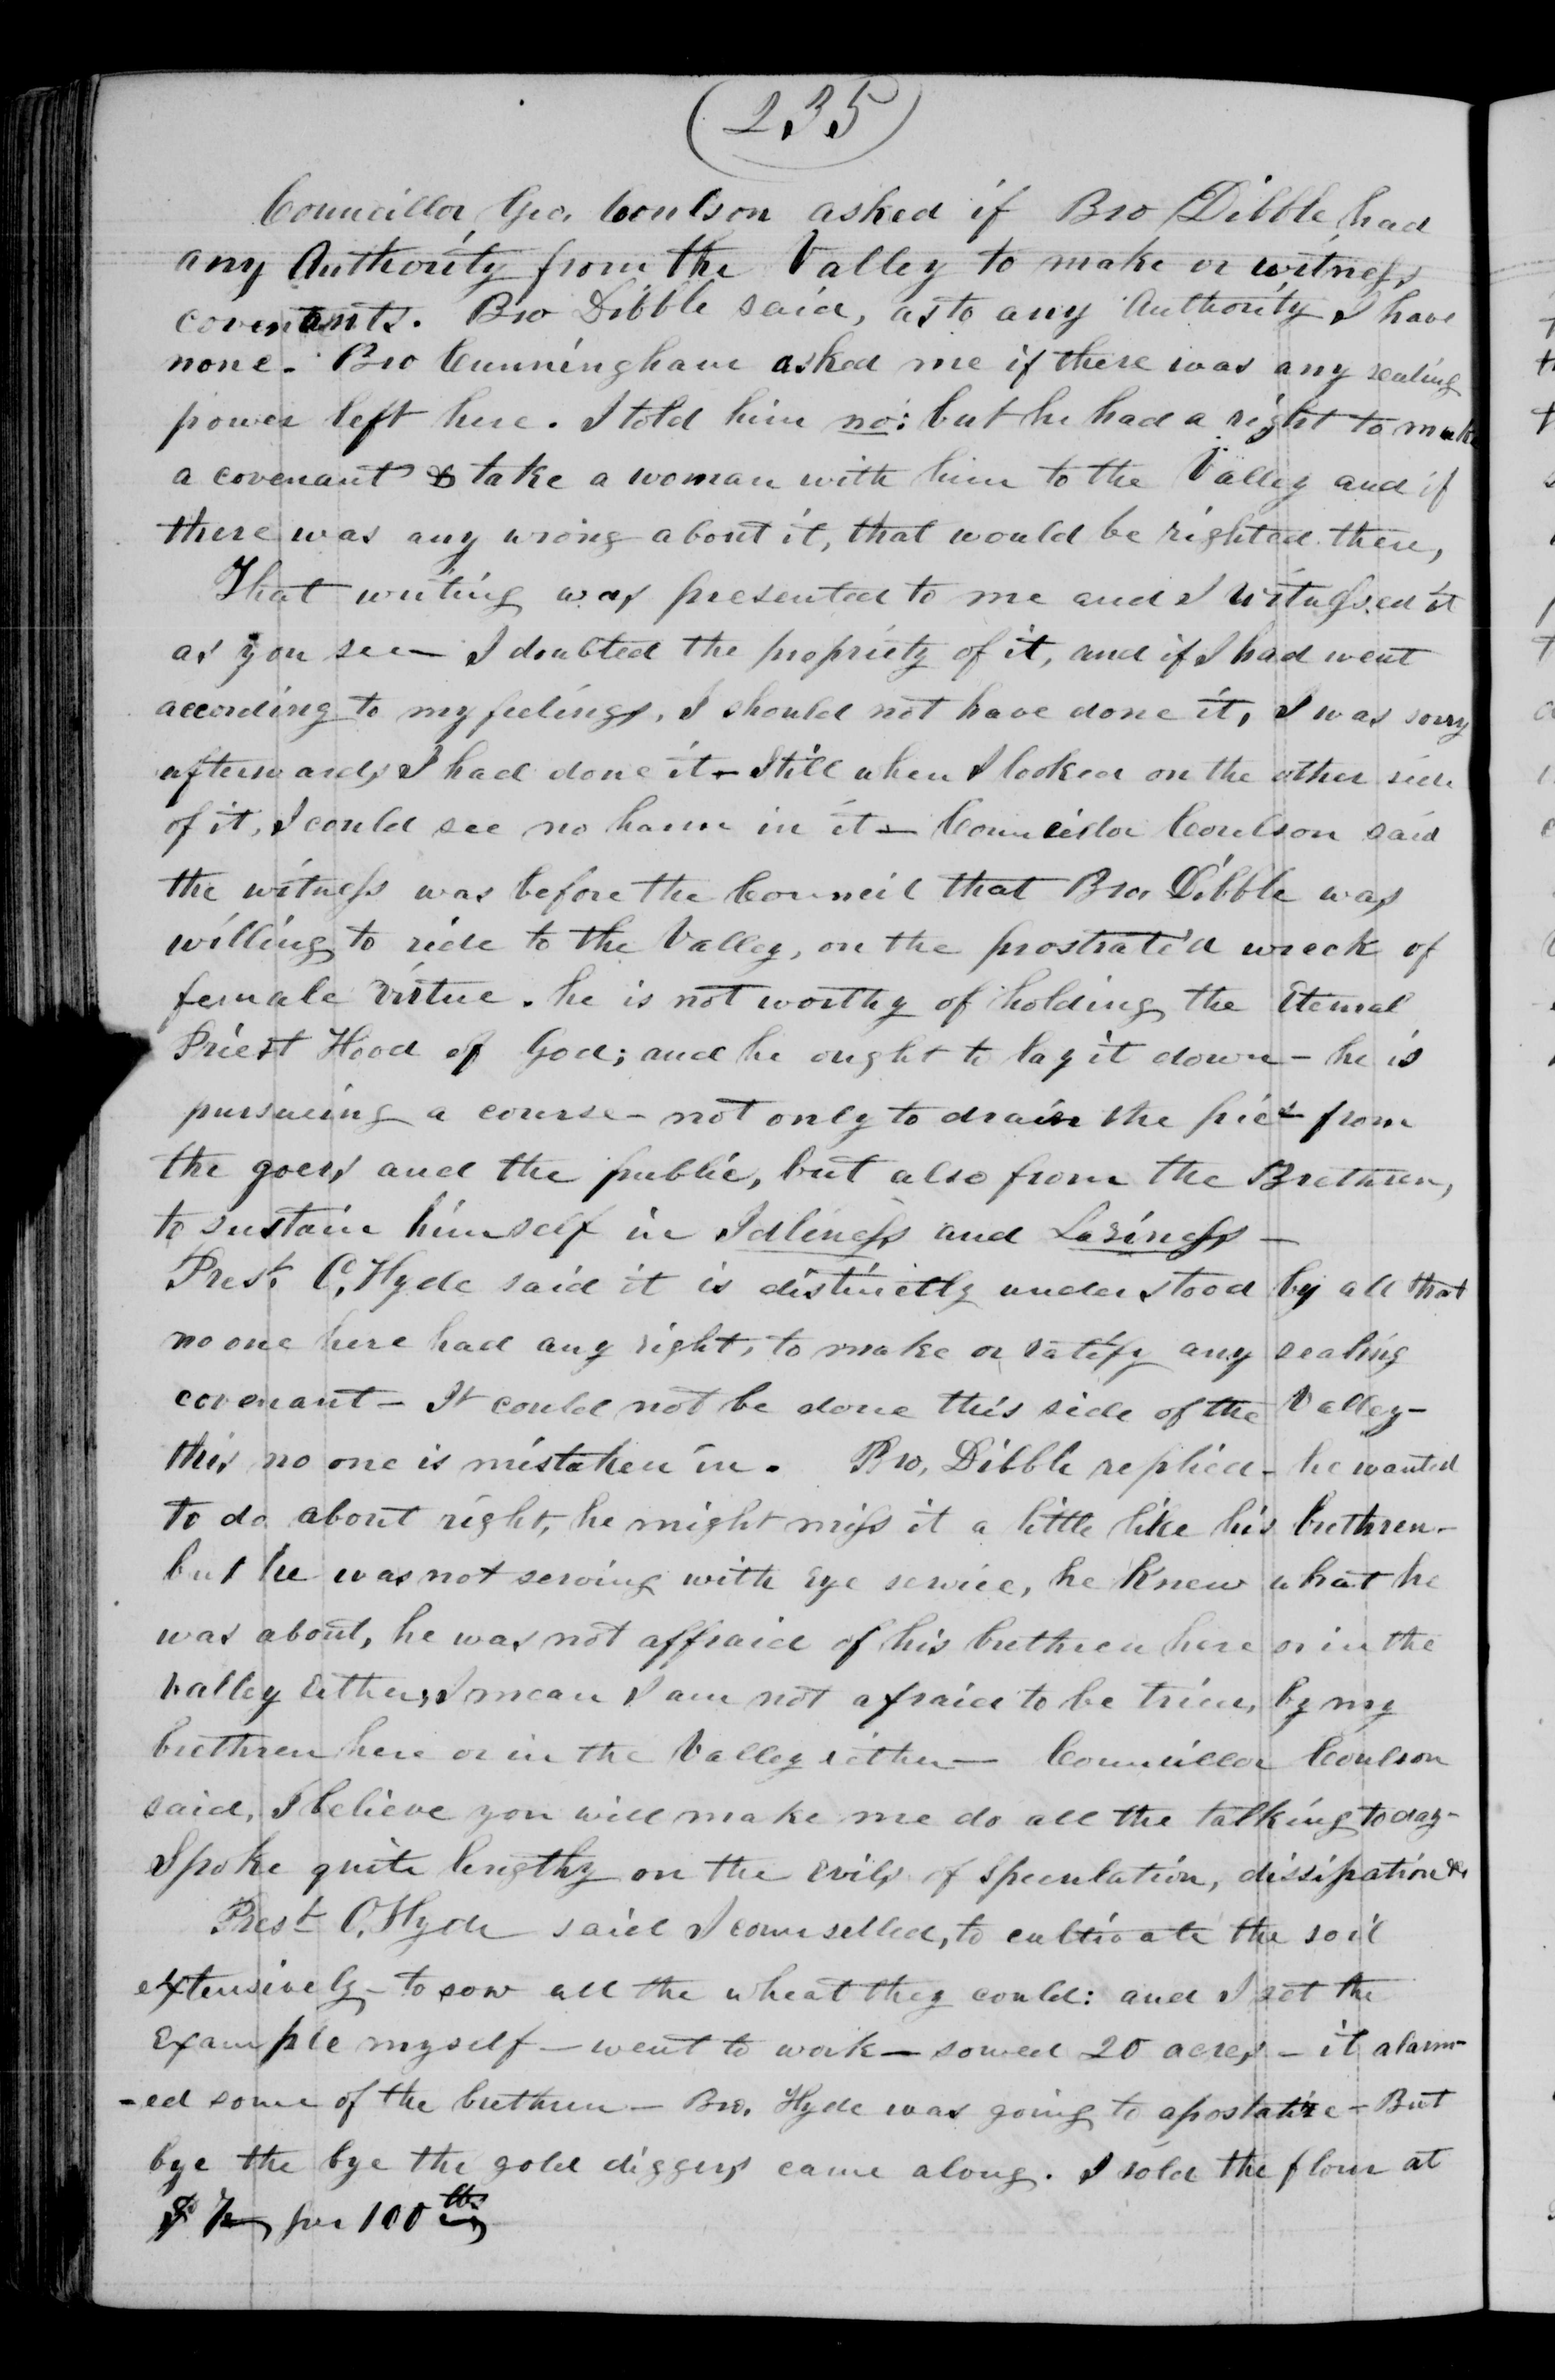 (235)
Councillor Geo. Coulson asked if Bro Dibble had
any Authority from the Valley to make or witness
covenants. Bro Dibble said, as to any Authority I have
none. Bro Cunningham asked me if there was any sealing
power left here. I told him no: but he had a right to make
a covenant & take a woman with him to the Valley and if
there was any wrong about it, that would be righted there,
That writing was presented to me and I witnessed it
as you see — I doubted the propriety of it, and if I had went
according to my feelings, I should not have done it, I was sorry
afterwards I had done it — Still when I looked on the other side
of it, I could see no harm in it — Councilor Coulson said
the witness was before the Council that Bro. Dibble was
willing to ride to the Valley, on the prostrated wreck of
female virtue. he is not worthy of holding the Eternal
Priest Hood of God; and he ought to lay it down — he is
pursueing a course — not only to drain the from
the goers and the public, but also from the Brethren,
to sustain himself in Idleness and Laziness —
Prest. O, Hyde said it is distinctly understood by all that
no one here had any right, to make or ratify any sealing
covenant — It could not be done this side of the Valley —
this no one is mistaken in. Bro, Dibble replied — he wanted
to do about right, he might miss it a little like his brethren —
but he was not serving with eye service, he knew what he
was about, he was not affraid of his brethren here or in the
Valley either, I mean I am not afraid to be tried, by my
brethren here or in the Valley either — Councillor Coulson
said, I believe you will make me do all the talking today —
Spoke quite lengthy on the evils of speculation, dissipation &c
Prest O, Hyde said I counselled, to cultivate the soil
extensively — to sow all the wheat they could: and I set the
example myself — went to work — sowed 20 acres — it alarm-
-ed some of the brethren — Bro. Hyde was going to apostatize — But
bye the bye the gold diggers came along. I sold the flour at
per 100 lbs